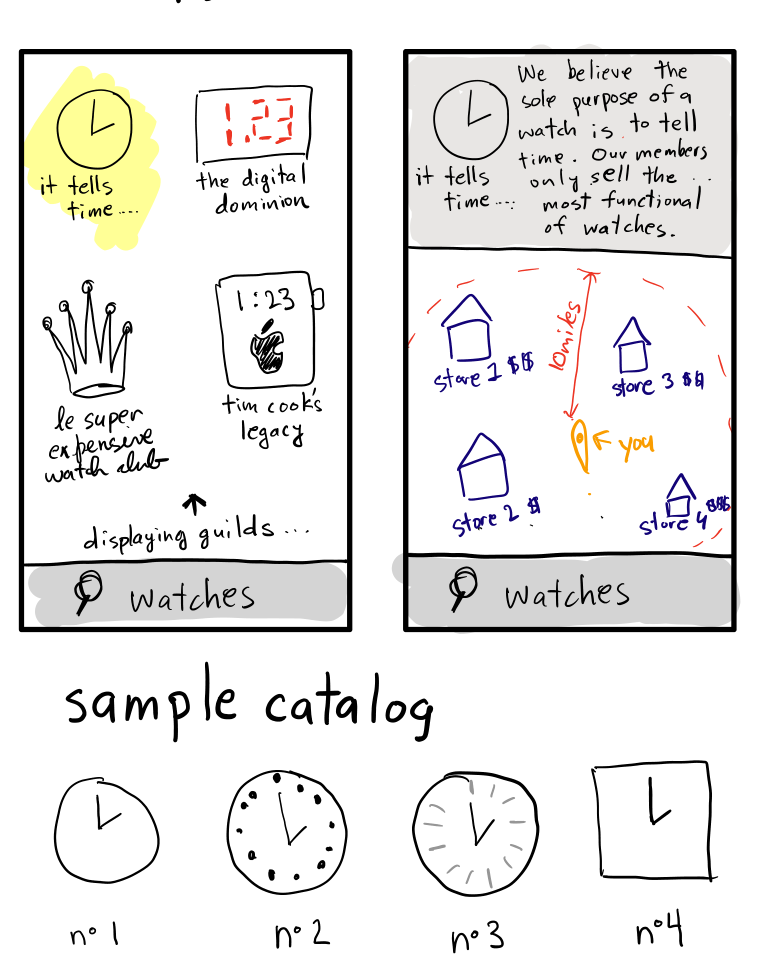 it tells
time....
1.23
the digital
dominion
le super
expensive
watch club
1:23
tim cook's
legacy
displaying guilds ...
watches
it tells
time....
We believe the
sole purpose of a
watch is to tell
time. Our members
only sell the
most functional
of watches.
10 miles
store 1 $$
store 3 $$
you
store 2 $
store 4 $$$
watches
sample catalog
nº 1
nº 2
nº 3
nº 4